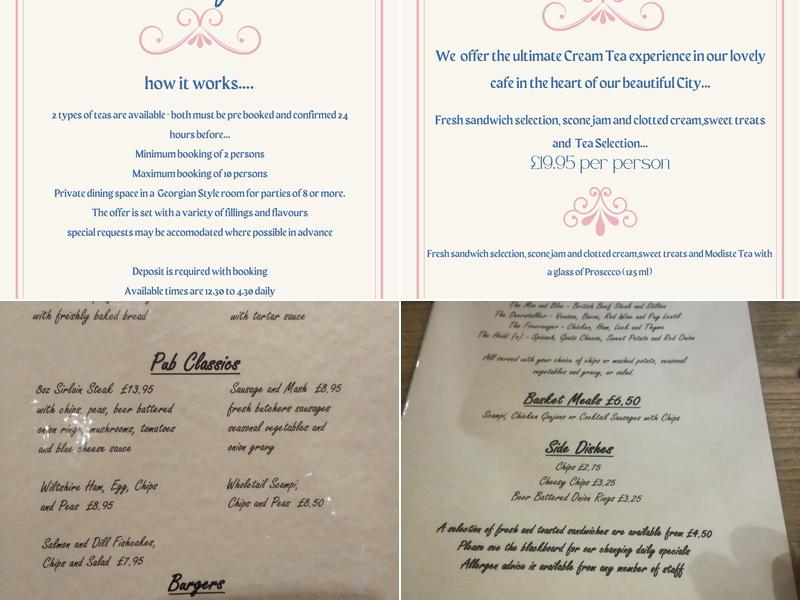 how it works....
2 types of teas are available - both must be pre booked and confirmed 24
hours before...
Minimum booking of 2 persons
Maximum booking of 10 persons
Private dining space in a Georgian Style room for parties of 8 or more.
The offer is set with a variety of fillings and flavours
special requests may be accomodated where possible in advance
Deposit is required with booking
Available times are 12.30 to 4.30 daily
We offer the ultimate Cream Tea experience in our lovely
cafe in the heart of our beautiful City...
Fresh sandwich selection, scone,jam and clotted cream,sweet treats
and Tea Selection...
£19.95 per person
Fresh sandwich selection, scone,jam and clotted cream,sweet treats and Modiste Tea with
a glass of Prosecco (125 ml)
with freshly baked bread
with tartar sauce
Pub Classics
8oz Sirloin Steak £13.95
with chips, peas, beer battered
onion rings, mushrooms, tomatoes
and blue cheese sauce
Wiltshire Ham, Egg, Chips
and Peas £8.95
Salmon and Dill Fishcakes,
Chips and Salad £7.95
Sausage and Mash £8.95
fresh butchers sausages
seasonal vegetables and
onion gravy
Wholetail Scampi,
Chips and Peas £8.50
Burgers
The Moo and Blue - British Beef Steak and Stilton
The Deerstalker - Venison, Bacon, Red Wine and Puy Lentil
The Freeranger - Chicken, Ham, Leek and Thyme
The Heidi (v) - Spinach, Goats Cheese, Sweet Potato and Red Onion
All served with your choice of chips or mashed potato, seasonal
vegetables and gravy, or salad.
Basket Meals £6.50
Scampi, Chicken Goujons or Cocktail Sausages with Chips
Side Dishes
Chips £2.75
Cheesy Chips £3.25
Beer Battered Onion Rings £3.25
A selection of fresh and toasted sandwiches are available from £4.50
Please see the blackboard for our changing daily specials
Allergen advice is available from any member of staff